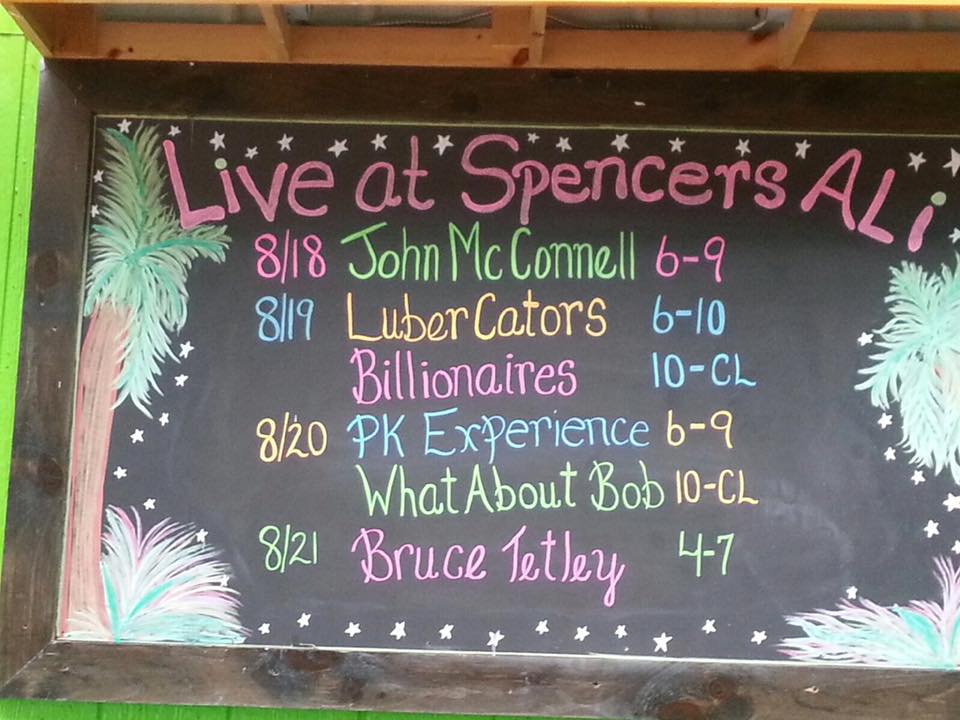 Live at Spencers ALi
8/18 John McConnell 6-9
8/19 LuberCators 6-10
Billionaires 10-CL
8/20 PK Experience 6-9
What About Bob 10-CL
8/21 Bruce Tetley 4-7